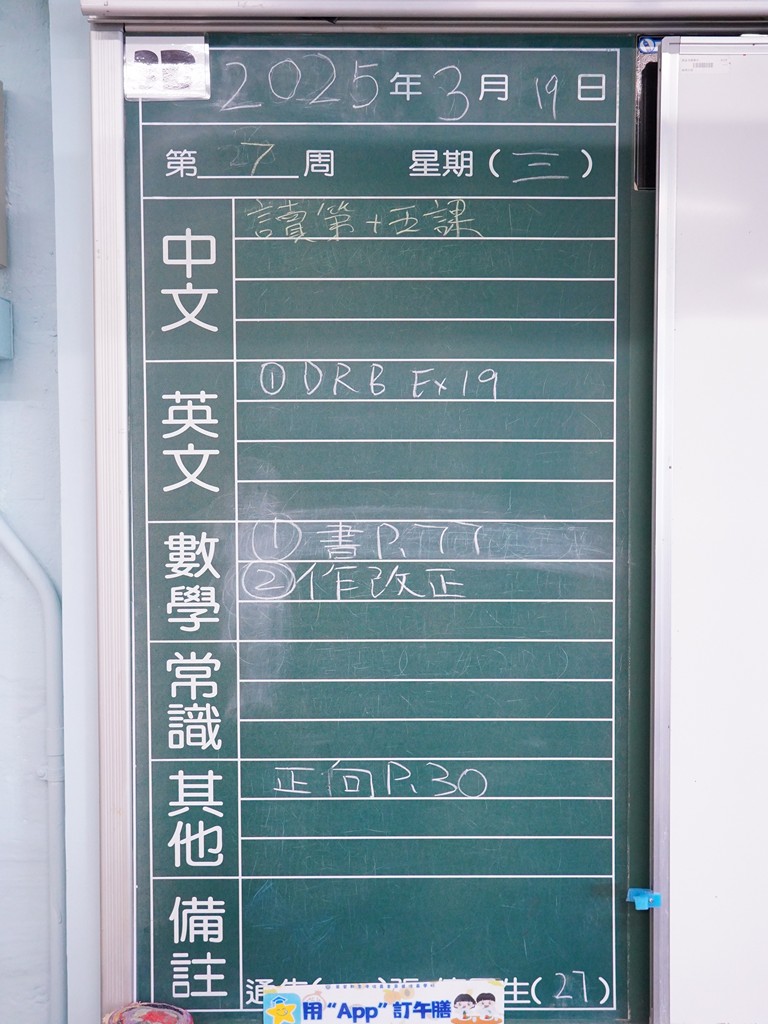 2025年3月19日
第7周 星期(三)
中文
讀第十五課
英文
①DRB Ex19
數學
①書P.77
②作改正
常識
其他
正向P.30
備註
生(27)
用“App”訂午膳